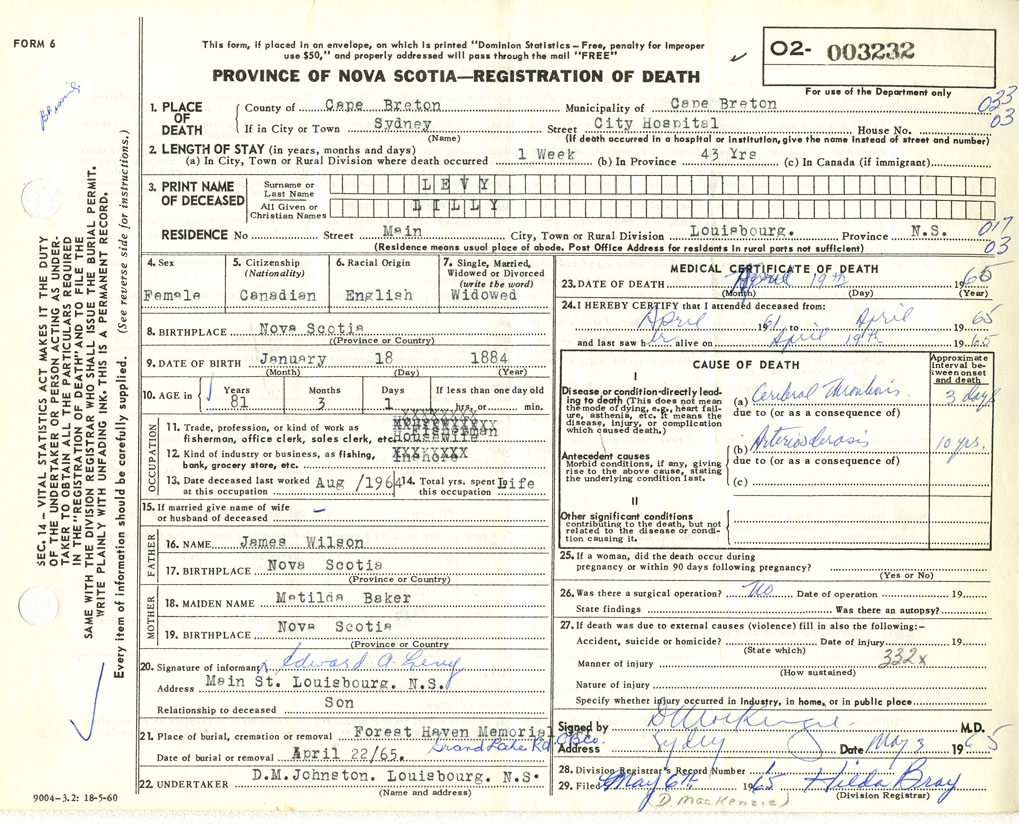 FORM 6
This form, if placed in an envelope, on which is printed "Dominion Statistics – Free, penalty for improper
use $50," and properly addressed will pass through the mail "FREE"
PROVINCE OF NOVA SCOTIA—REGISTRATION OF DEATH
02- 003232
For use of the Department only
033
03
1. PLACE OF DEATH
County of Cape Breton Municipality of Cape Breton
If in City or Town Sydney Street City Hospital House No.
(Name) (If death occurred in a hospital or institution, give the name instead of street and number)
2. LENGTH OF STAY (in years, months and days)
(a) In City, Town or Rural Division where death occurred 1 Week (b) In Province 43 Yrs (c) In Canada (if immigrant)
3. PRINT NAME OF DECEASED
Surname or Last Name LEVY
All Given or Christian Names LILLY
017
03
RESIDENCE No Street Main City, Town or Rural Division Louisbourg. Province N.S.
(Residence means usual place of abode. Post Office Address for residents in rural parts not sufficient)
4. Sex
Female
5. Citizenship
(Nationality)
Canadian
6. Racial Origin
English
7. Single, Married,
Widowed or Divorced
(write the word)
Widowed
8. BIRTHPLACE Nova Scotia
((Province or Country)
9. DATE OF BIRTH January 18 1884
(Month) (Day) (Year)
10. AGE in
Years Months Days If less than one day old
81 3 1 hrs. or min.
OCCUPATION
11. Trade, profession, or kind of work as
fisherman, office clerk, sales clerk, etc. Housewife
12. Kind of industry or business, as fishing,
bank, grocery store, etc. Inshore
13. Date deceased last worked
at this occupation Aug /1964
14. Total yrs. spent in
this occupation Life
15. If married give name of wife
or husband of deceased –
FATHER
16. NAME James Wilson
17. BIRTHPLACE Nova Scotia
(Province or Country)
MOTHER
18. MAIDEN NAME Matilda Baker
19. BIRTHPLACE Nova Scotia
(Province or Country
20. Signature of informant x Edward A. Levy
Address Main St. Louisbourg. N.S.
Relationship to deceased Son
21. Place of burial, cremation or removal Forest Haven Memorial
Grand Lake Rd. C.B.Co.
Date of burial or removal April 22/65.
22. UNDERTAKER D.M.Johnston. Louisbourg. N.S.
(Name and address)
9004-3.2: 18-5-60
MEDICAL CERTIFICATE OF DEATH
23. DATE OF DEATH April 19th 1965
(Month) (Day) (Year)
24. I HEREBY CERTIFY that I attended deceased from:
April 1961 to April 1965
and last saw her alive on April 19th 1965
CAUSE OF DEATH
Approximate
interval be-
tween onset
and death
I
Disease or condition directly lead-
ing to death (This does not mean
the mode of dying, e.g., heart fail-
ure, asthenia, etc. It means the
disease, injury, or complication
which caused death.)
(a) Cerebral Thrombosis 3 days
due to (or as a consequence of)
Antecedent causes
Morbid conditions, if any, giving
rise to the above cause, stating
the underlying condition last.
(b) Arteriosclerosis 10 yrs.
due to (or as a consequence of)
(c)
II
Other significant conditions
contributing to the death, but not
related to the disease or condi-
tion causing it.
25. If a woman, did the death occur during
pregnancy or within 90 days following pregnancy?
(Yes or No)
26. Was there a surgical operation? No Date of operation 19
State findings Was there an autopsy?
27. If death was due to external causes (violence) fill in also the following:–
Accident, suicide or homicide? Date of injury 19
(State which)
332x
Manner of injury
(How sustained)
Nature of injury
Specify whether injury occurred in industry, in home, or in public place
Signed by D MacKenzie M.D.
Address Sydney Date May 3 1965
28. Division Registrar's Record Number 1
29. Filed May 6th 1965 Hilda Bray
(Division Registrar)
(D MacKenzie)
SEC. 14 – VITAL STATISTICS ACT MAKES IT THE DUTY
OF THE UNDERTAKER OR PERSON ACTING AS UNDER-
TAKER TO OBTAIN ALL THE PARTICULARS REQUIRED
IN THE "REGISTRATION OF DEATH" AND TO FILE THE
SAME WITH THE DIVISION REGISTRAR WHO SHALL ISSUE THE BURIAL PERMIT.
WRITE PLAINLY WITH UNFADING INK. THIS IS A PERMANENT RECORD.
Every item of information should be carefully supplied. (See reverse side for instructions.)